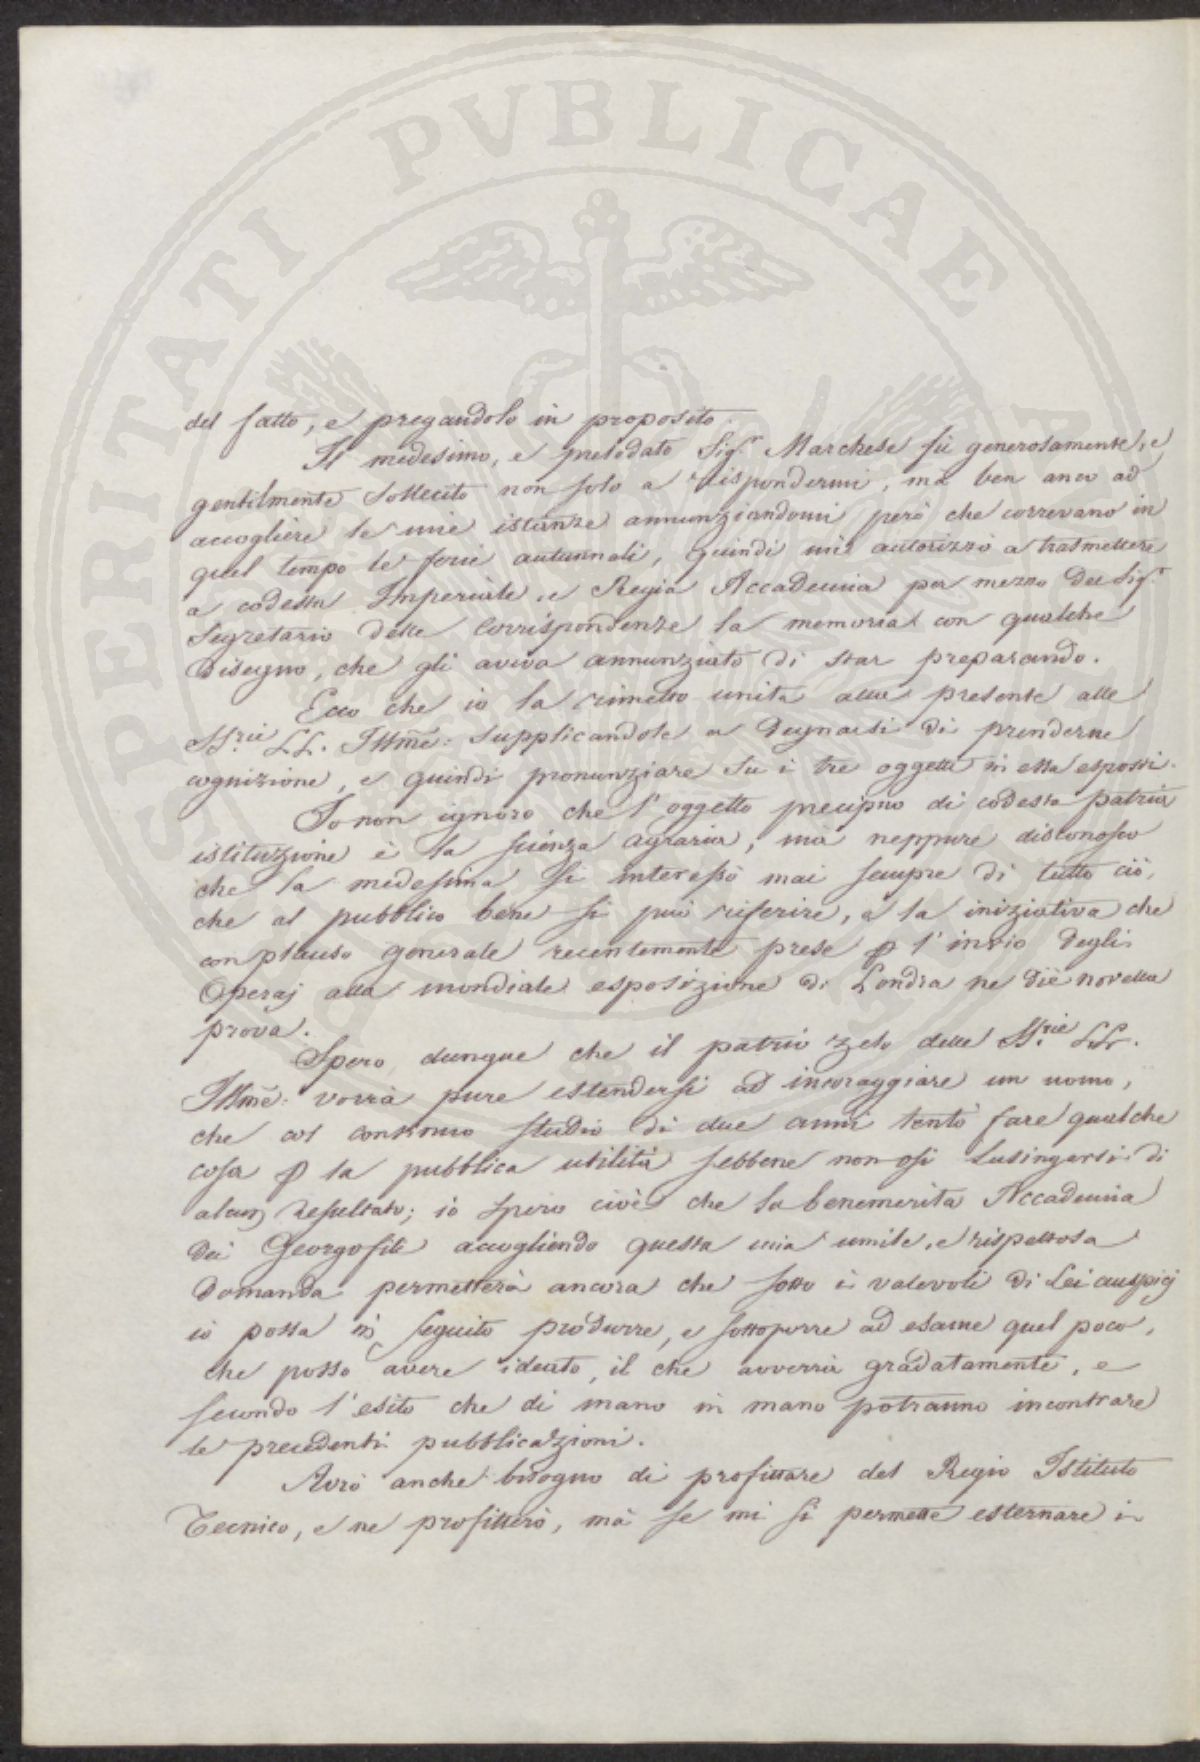 PROSPERITATI PVBLICAE AVGENDAE
del fatto, e pregandolo in proposito.
Il medesimo, e prelodato Sig.r Marchese fù generosamente, e
gentilmente sollecito non solo a rispondermi, ma ben anco ad
accogliere le mie istanze annunziandomi però che correvano in
quel tempo le ferie autunnali, quindi mi autorizzò a trasmettere
a codesta Imperiale, e Regia Accademia per mezzo del Sig.r
Segretario delle Corrispondenze la memoria con qualche
disegno, che gli aveva annunziato di star preparando.
Ecco che io la rimetto unita alla presente alle
SS.rie LL. Illmē: supplicandole a degnarsi di prenderne
cognizione, e quindi pronunziare su i tre oggetti in essa esposti.
Io non ignoro che l'oggetto precipuo di codesta patria
istituzione è la scienza agraria, mà neppure disconosco
che la medesima si interessò mai sempre di tutto ciò,
che al pubblico bene si può riferire, e la iniziativa che
con plauso generale recentemente prese p l'invio degli
Operaj alla mondiale esposizione di Londra ne diè novella
prova.
Spero dunque che il patrio zelo delle SS.rie LL.
Illmē: vorrà pure estendersi ad incoraggiare un uomo,
che col continuo studio di due anni tentò fare qualche
cosa p la pubblica utilità sebbene non osi lusingarsi di
alcun resultato; io spero cioè che la benemerita Accademia
dei Georgofili accogliendo questa mia umile, e rispettosa
domanda permetterà ancora che sotto i valevoli di Lei auspicj
io possa in seguito produrre, e sottoporre ad esame quel poco,
che posso avere ideato, il che avverrà gradatamente, e
secondo l'esito che di mano in mano potranno incontrare
le precedenti pubblicazioni.
Avrò anche bisogno di profittare del Regio Istituto
Tecnico, e ne profitterò, mà se mi si permette esternare i